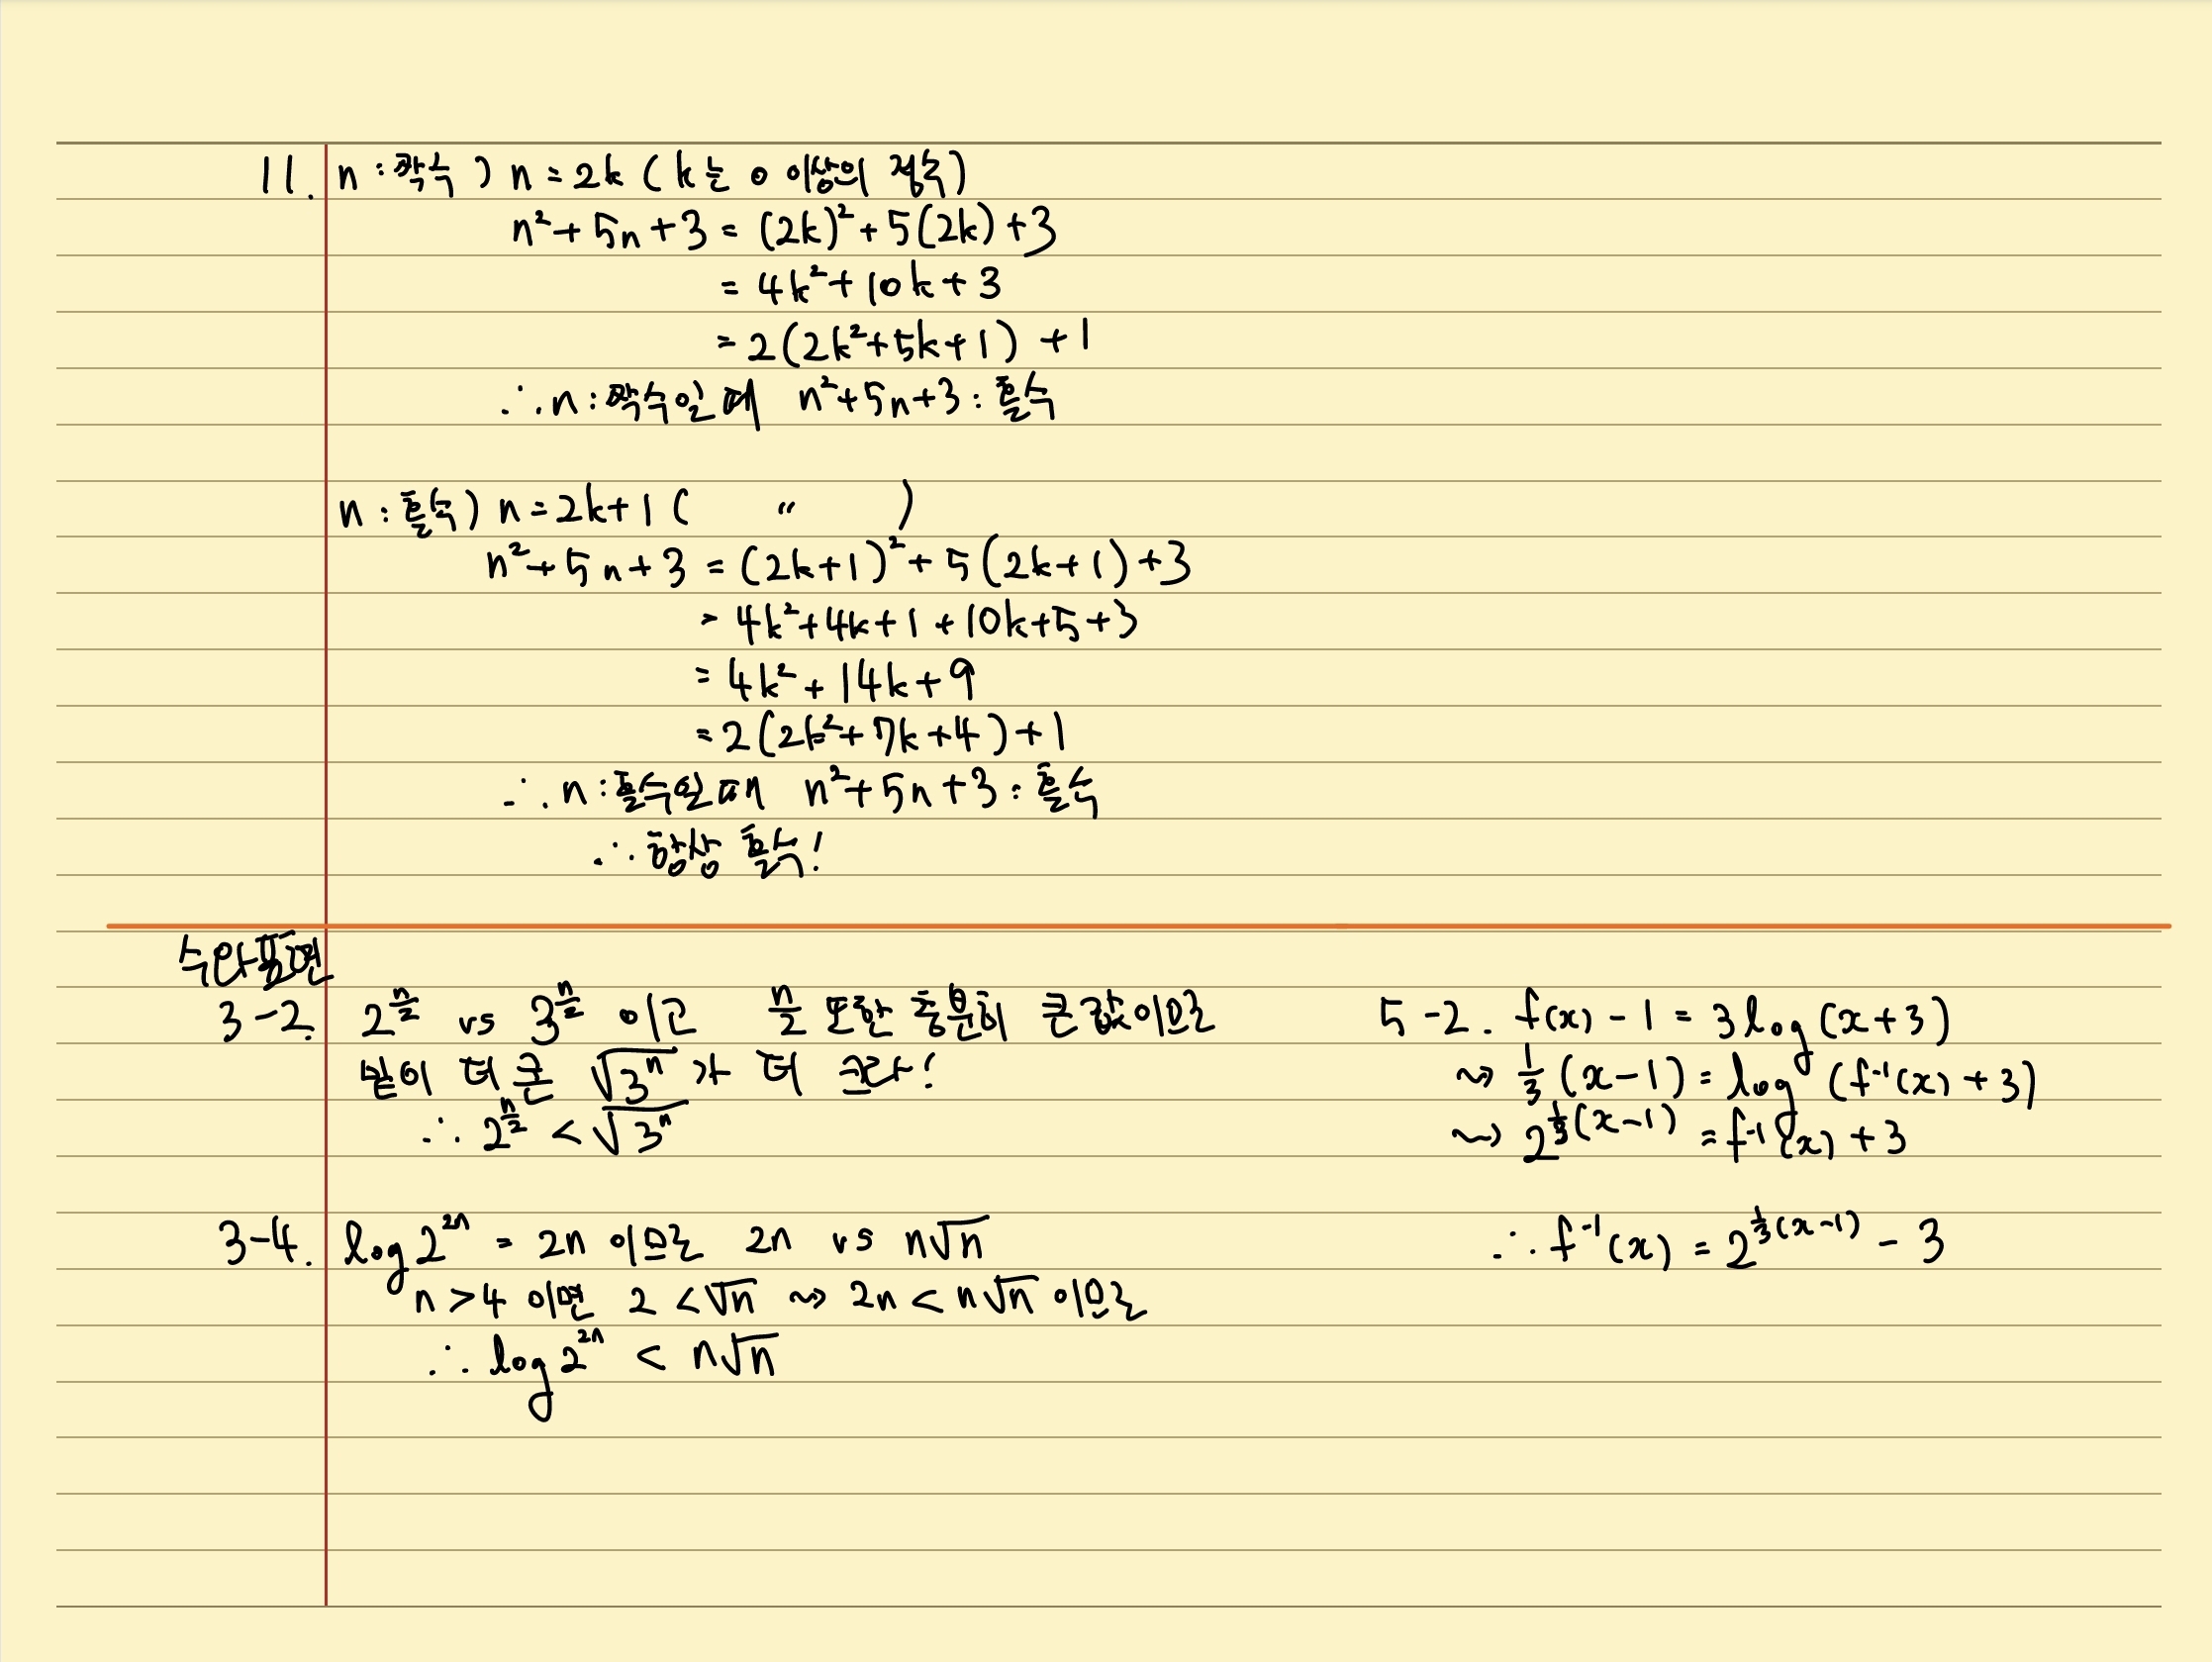 11. n : 짝수 ) n = 2k ( k는 0 이상의 정수)
n² + 5n + 3 = (2k)² + 5(2k) + 3
= 4k² + 10k + 3
= 2(2k² + 5k + 1) + 1
∴ n : 짝수일 때 n² + 5n + 3 : 홀수
n : 홀수) n = 2k+1 ( 〃 )
n² + 5n + 3 = (2k+1)² + 5(2k+1) + 3
= 4k² + 4k + 1 + 10k + 5 + 3
= 4k² + 14k + 9
= 2(2k² + 7k + 4) + 1
∴ n : 홀수일 때 n² + 5n + 3 : 홀수
∴ 항상 홀수!
수와 표현
3-2. 2^(n/2) vs 3^(n/2) 이고 n/2 또한 충분히 큰 값이므로
밑이 더 큰 √(3ⁿ) 가 더 크다!
∴ 2^(n/2) < √(3ⁿ)
3-4. log 2^(2n) = 2n 이므로 2n vs n√n
n > 4 이면 2 < √n ⇝ 2n < n√n 이므로
∴ log 2^(2n) < n√n
5-2. f(x) - 1 = 3 log (x+3)
⇝ 1/3 (x-1) = log (f⁻¹(x) + 3)
⇝ 2^(1/3(x-1)) = f⁻¹(x) + 3
∴ f⁻¹(x) = 2^(1/3(x-1)) - 3